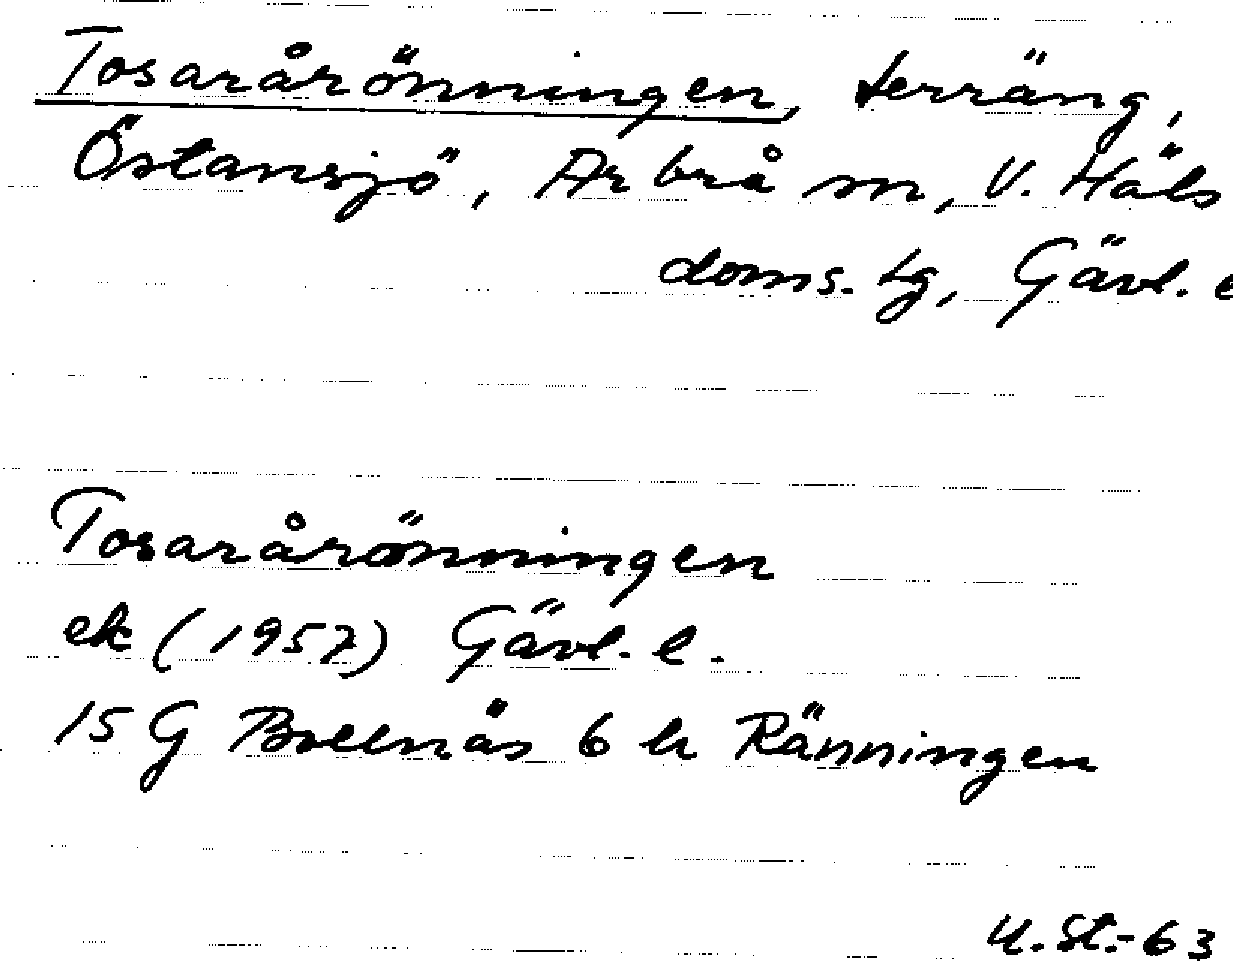 Tosarårönningen, terräng,
Östansjö, Arbrå sn, V. Häls
doms. tg, Gävl. e
Tosarårönningen
ek (1957) Gävl. l.
15 G Bollnäs 6 h Ränningen
U. St.-63